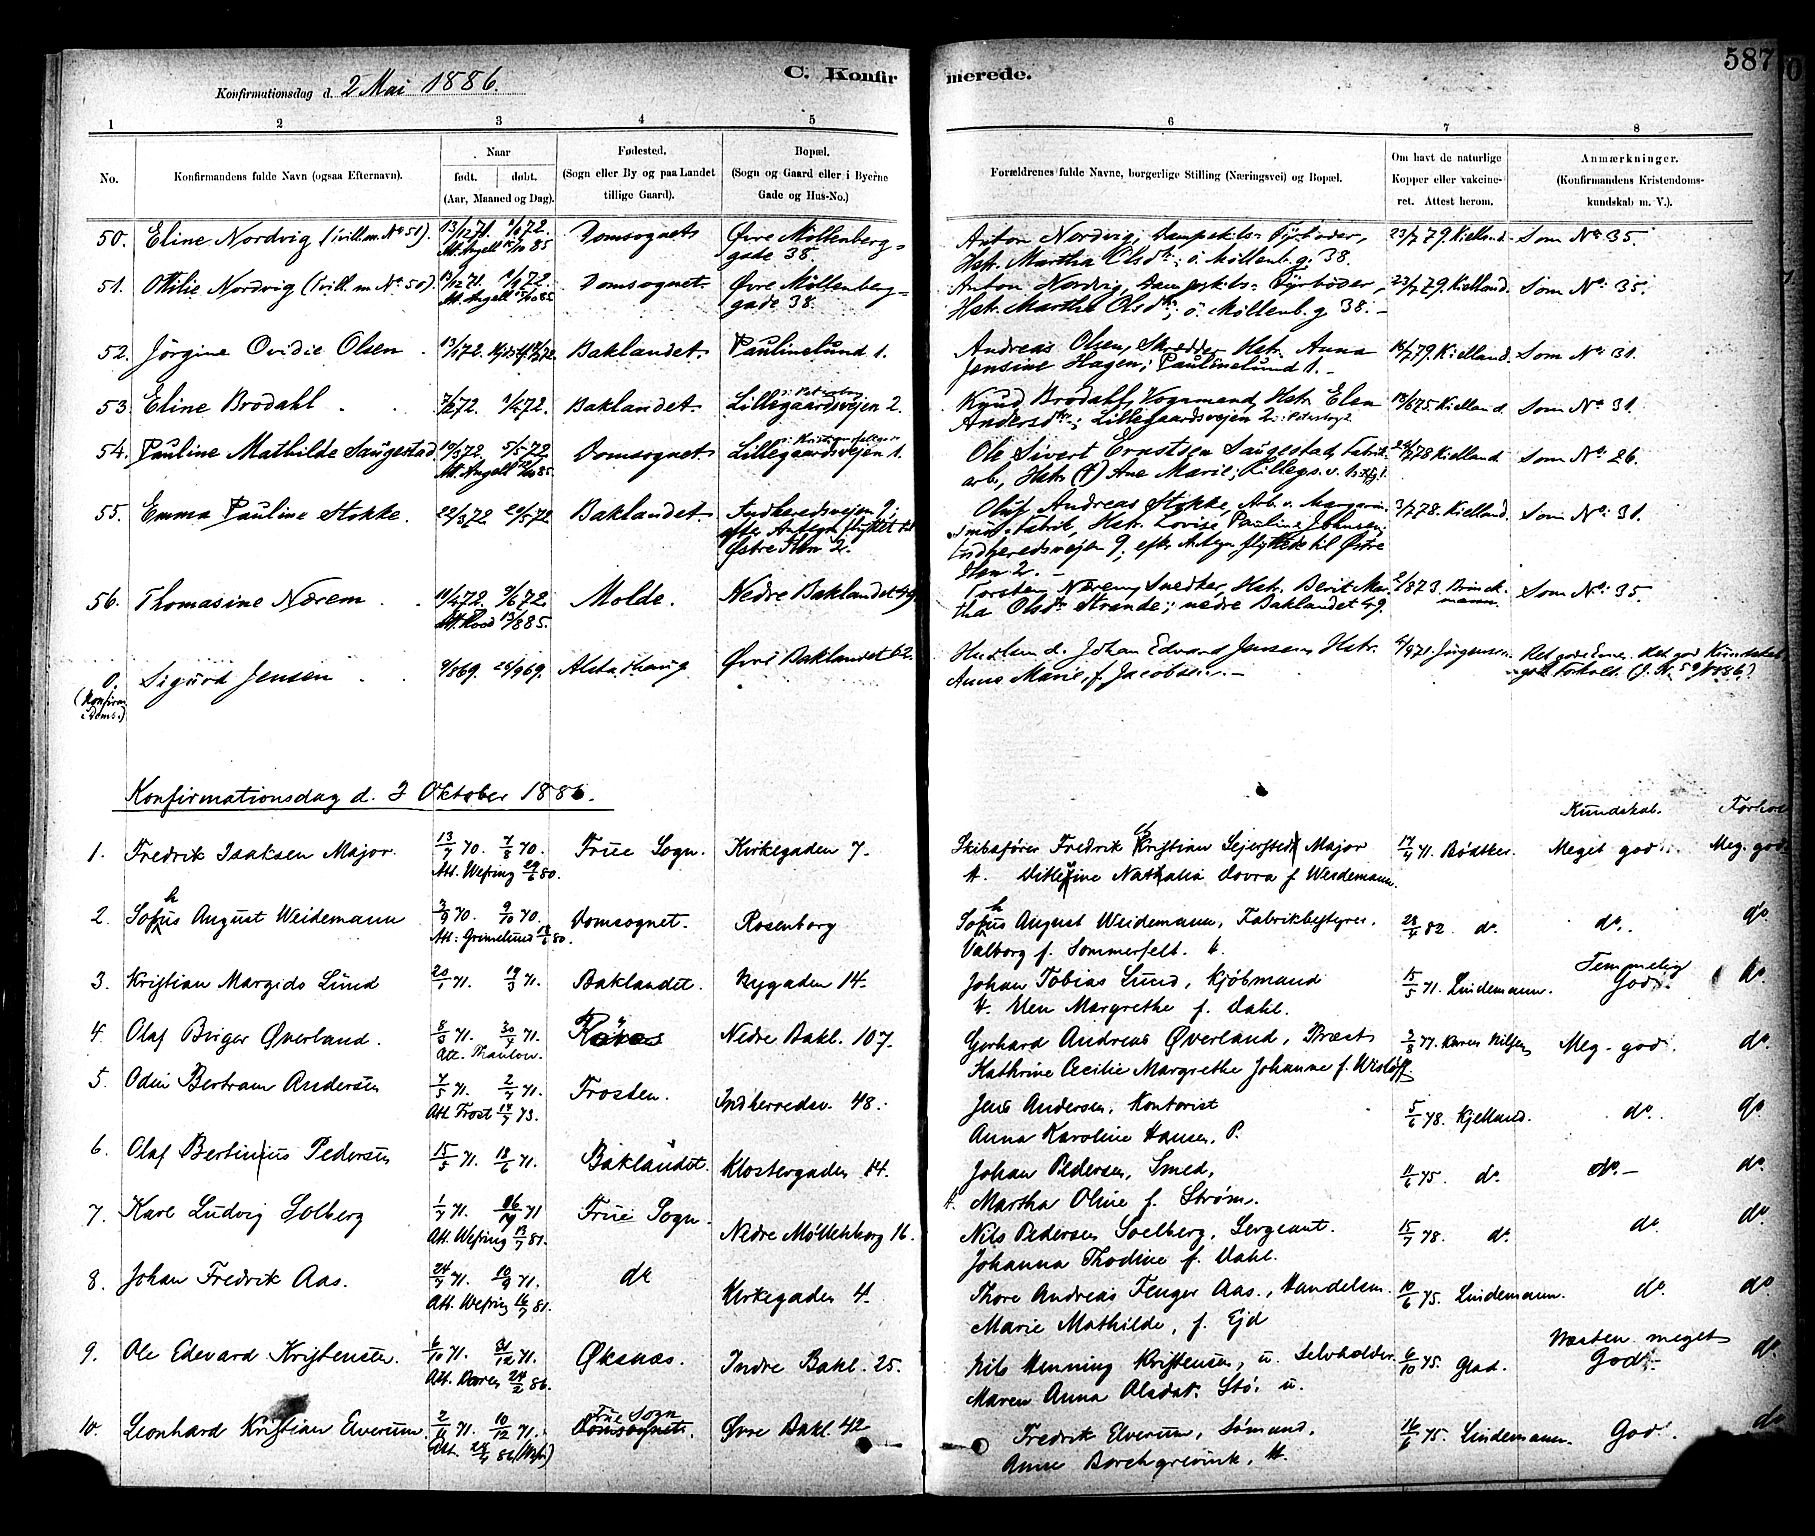 587
C. Konfirmerede.
Konfirmationsdag d. 2 Mai 1886.
1 2 3 4 5 6 7 8
No. Konfirmandens fulde Navn (ogsaa Efternavn). Naar født. døbt. (Aar, Maaned og Dag). Fødested. (Sogn eller By og paa Landet tillige Gaard). Bopæl. (Sogn og Gaard eller i Byerne Gade og Hus-No.) Forældrenes fulde Navne, borgerlige Stilling (Næringsvei) og Bopæl. Om havt de naturlige Kopper eller vakcineret. Attest herom. Anmærkninger. (Konfirmandens Kristendomskundskab m. V.).
50. Eline Nordvig (Tvill. m No 51). 13/12 71. 1/9 72. Domsognet Øvre Möllenberg= Anton Nordvig, Dampskibs= Fyrbøder, 23/7 79. Kielland. Som No 35.
Att. Angell 15/10 85 gade 38. Hstr. Martha Olsdtr; ö. Möllenb. g. 38.
51. Ottilie Nordvig (Tvill. m No 50). 13/12 71. 1/9 72. Domsognet. Øvre Möllenberg= Anton Nordvig, Dampskibs= Fyrbøder, 23/7 79. Kielland. Som No 35.
Att. Angell 15/10 85 gade 38. Hstr. Martha Olsdtr; ö. Möllenb. g. 38. -
52. Jörgine Ovidie Olsen . 13/1 72. Baklandet. Paulinelund 1. Andreas Olsen, Skredder, Hstr. Anna 18/7 79. Kielland. Som No 31.
Jensine Hagen; Paulinelund 1. -
53 Eline Brodahl . . 7/2 72. 1/4 72. Baklandet. Lillegaardsvejen 2. Knud Brodahl, Vognmand, Hstr. Elen 18/6 75. Kielland. Som No 31.
Andersdtr; Lillegaardsvejen 2.
54. Pauline Mathilde Saugestad 10/3 72. 5/5 72. Domsognet. Lillegaardsvejen 1. Ole Sivert Ernstsen Saugestad, Fabrik- 78 Kielland. Som No 26.
Att. Angell 85. arb, Hstr. (†) Ane Marie; Lillegs. v. 1.
55. Emma Pauline Stokke. 22/3 72. 20/5 72. Baklandet. Indheredsvejen 9; Oluf Andreas Stokke, Arb. v. Margarin- 3/7 78. Kielland. Som No 31.
efter Antegn. flyttet til smör=Fabrik, Hstr. Lovise Pauline Johnsen;
Østre Ihn 2. Indheredsvejen 9; efter Antegn. flyttet til Østre
Ihn 2. -
56. Thomasine Nærem . . 11/4 72. 9/6 72. Molde. Nedre Baklandet 49. Torsten Nærem, Snedker, Hstr. Berit Mar- 2/8 73. Brinck- Som No 35.
Att. Rood 13/8 85. tha Olsdtr Strande; nedre Baklandet 49. mann.
0. Sigurd Jensen . 9/8 69. 26/9 69. Alstadhaug Øvre Baklandet 62. Johan Edvard Jensen, Hstr. 71. Jörgensen.
(Konfirm. i Doms.) Anne Marie, f. Jacobsen. -
Konfirmationsdag d. 3 Oktober 1886.
Kundskab. Forhold
1. Fredrik Isaksen Major. 13/7 70. 7/8 70. Frue Sogn. Kirkegaden 7. Skibsfører Fredrik Kristian Sejersted Major 17/4 71. Bødtker. Meget god. Meg. god
Att. Wefring 29/6 80. H. Ditlefine Nathalia Dovra f Weidemann.
2. Sophus August Weidemann 3/9 70. 9/10 70. Domsognet. Rosenborg Sophus August Weidemann, Fabrikbestyrer. 28/4 82. do. do. do.
Att: Grimelund 18/6 80. Valborg f. Sommerfelt. H.
3. Kristian Margido Lund 20/1 71. 19/3 71. Baklandet. Nygaden 14. Johan Tobias Lund, Kjöbmand 15/5 71. Lindemann. Temmelig God. do.
H. Uen Margrethe f. Dahl.
4. Olaf Birger Øverland. 8/3 71. 30/4 71. Röraas Nedre Bakl. 107. Gerhard Andreas Øverland, Præst 3/8 77. Karen Nilsen Meg. god. do.
Att. Thaulow. Kathrine Cecilie Margrethe Johanne f. Wisløff
5. Odin Bertram Andersen 4/5 71. 2/7 71. Frosten. Indherredsv. 48. Jens Andersen, Kontorist 5/6 78. Kjelland. do. do.
Att. Frost 14/7 73. Anna Karoline Hansen, P.
6. Olaf Bertinius Pedersen 15/5 71. 18/6 71. Baklandet. Klostergaden 84. Johan Pedersen, Smed, 11/6 75. do. do. - do.
H. Martha Oline f. Strøm.
7. Karl Ludvig Solberg 1/7 71. 71 Frue Sogn. Nedre Møllenborg 16. Nils Pedersen Soelberg, Sergeant. 15/7 78. do. do. do.
Att. Wefring 13/7 81. Johanna Thodine f. Dahl.
8. Johan Fredrik Aas. 24/7 71. 10/9 71. do Kirkegaden 4. Thore Andreas Fenger Aas., Handelsm. 10/6 75. Lindemann. do. do.
Att. Wefring 16/7 81. Marie Mathilde, f. Ejd
9. Ole Edevard Kristensen. 6/10 71. 31/12 71. Øksnæs. Indre Bakl. 25. Nils Henning Kristensen, u. Selvholder. 6/10 75. Glad. Næsten meget God. do.
Att. 24/2 86. Maren Anna Olsdat. Stö. u.
10. Leonhard Kristian Elverum. 2/11 71. 10/12 71. Frue Sogn Domsognet. Øvre Bakl. 42 Fredrik Elverum, Sømand. 16/6 75. Lindemann. God. do
Att. 28/4 86 Anne Borchgrevink, H.